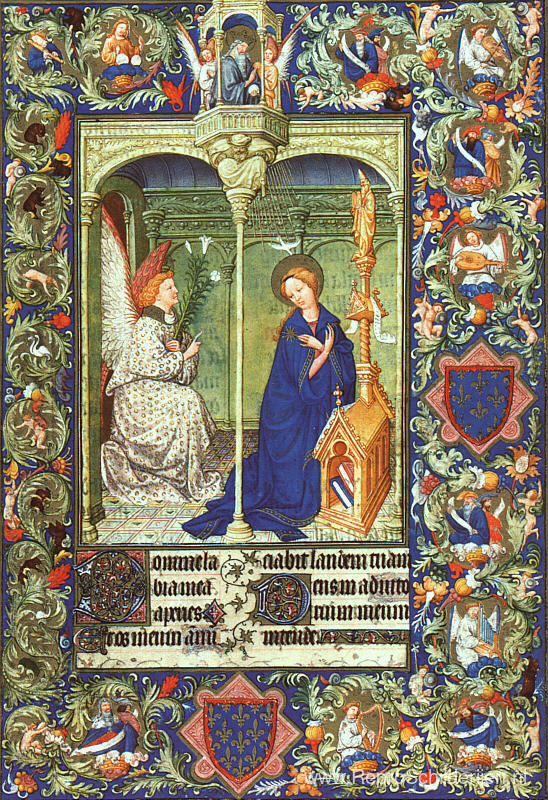 Domine la
bia mea
aperies
Et os meum annu
ciabit laudem tuam
Deus in adiuto
rium meum
intende
www.ReproSchilderijen.nl